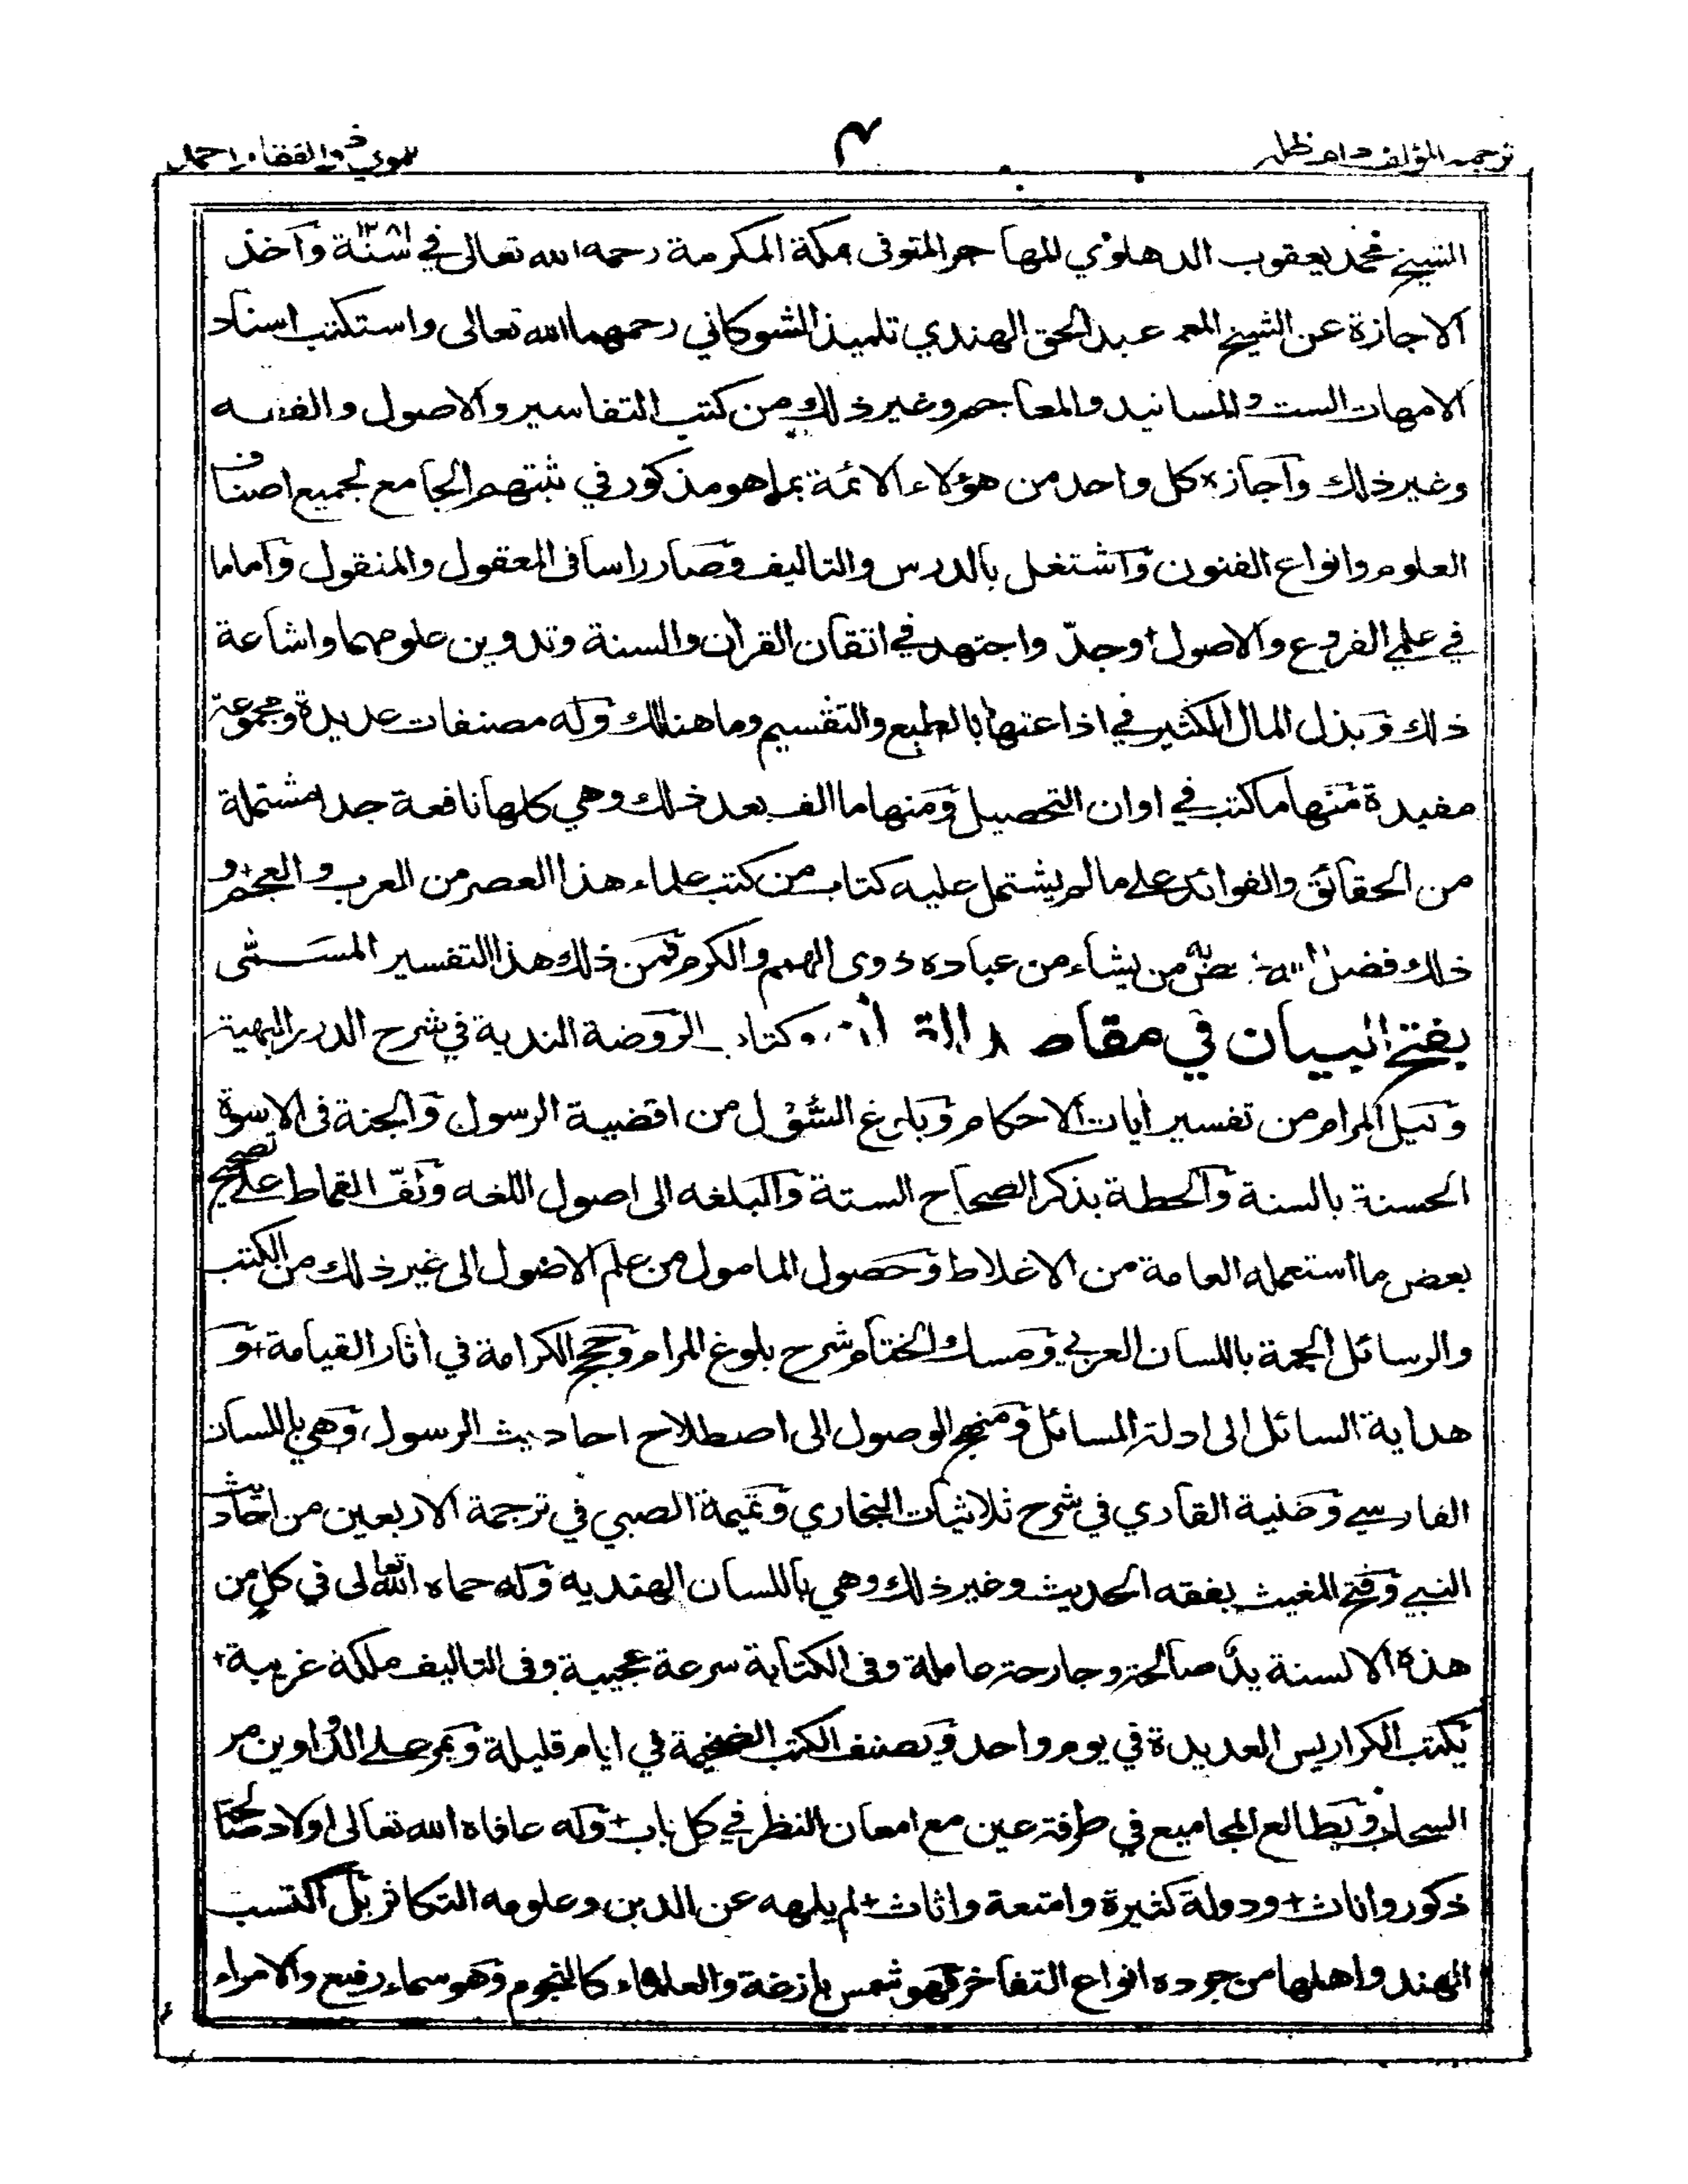 ترجمه المؤلف دام ظله
٣
للمولوي ذو الفقار احمد
الشيخ محمد يعقوب الدهلوي المهاجر المتوفى بمكة المكرمة رحمه الله تعالى في سنة ١٢٨١ وآخذ
الاجازة عن الشيخ المعمر عبد الحق الهندي تلميذ الشوكاني رحمهما الله تعالى واستكتب اسناد
الامهات الست والمسانيد والمعاجم وغير ذلك من كتب التفاسير والاصول والفقه
وغير ذلك وآجازه كل واحد من هؤلاء الائمة بما هو مذكور في ثبتهم الجامع لجميع اصناف
العلوم وانواع الفنون وآشتغل بالدرس والتاليف وصار راسا في المعقول والمنقول وآماما
في علمي الفروع والاصول+ وجدّ واجتهد في اتقان القرآن والسنة وتدوين علومهما واشاعة
ذلك وبذل المال الكثير في اذاعتها بالطبع والتقسيم وما هنالك وله مصنفات عديدة ومجموعة
مفيدة منها ما كتب في اوان التحصيل ومنها ما الف بعد ذلك وهي كلها نافعة جدا مشتملة
من الحقائق والفوائد على ما لم يشتمل عليه كتاب من كتب علماء هذا العصر من العرب والعجم+ و
ذلك فضل الله من يشاء من عباده ذوى الهمم والكرم فمن ذلك هذا التفسير المسمّى
بفتح البيان في مقاصد القرآن وكتاب الروضة الندية في شرح الدرر البهية
ونيل المرام من تفسير آيات الاحكام وبلوغ السُّؤل من اقضية الرسول والجنة فى الاسوة
الحسنة بالسنة والحطة بذكر الصحاح الستة والبلغه الى اصول اللغه ولفّ القماط على تصحيح
بعض ما استعمله العامة من الاغلاط وحصول المامول من علم الاصول الى غير ذلك من الكتب
والرسائل الجمة باللسان العربي ومسك الختام شرح بلوغ المرام وحجج الكرامة في آثار القيامة+ و
هداية السائل الى ادلة المسائل ومنهج الوصول الى اصطلاح احاديث الرسول، وهي باللسان
الفارسي وغنية القاري في شرح ثلاثيات البخاري وتميمة الصبي في ترجمة الاربعين من احاديث
النبي وفتح المغيث بفقه الحديث وغير ذلك وهي باللسان الهنديه وله حماه الله تعالى في كل من
هذه الالسنة يدٌ صالحة وجارحة عاملة وفى الكتابة سرعة عجيبة وفى التاليف ملكة غريبة+
يكتب الكراريس العديدة في يوم واحد ويصنف الكتب الضخيمة في ايام قليلة ويمر على الدّواوين مر
السحاب ويطالع المجاميع في طرفة عين مع امعان النظر في كل باب+ وله عافاه الله تعالى اولاد
ذكور واناث+ ودولة كثيرة وامتعة واثاث+ لم يلهه عن الدين وعلومه التكاثر بل آكتسب
الهند واهلها من جوده انواع التفاخر فهو شمس بازغة والعلماء كالنجوم وهو سماء رفيع والامراء